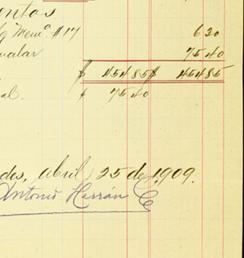 entos
Memo $17 6 20
ualar 75 40
$ 454 85 $ 454 85
al. $ 75 40
des, abril 25 de 1909.
Antonio Herrán C